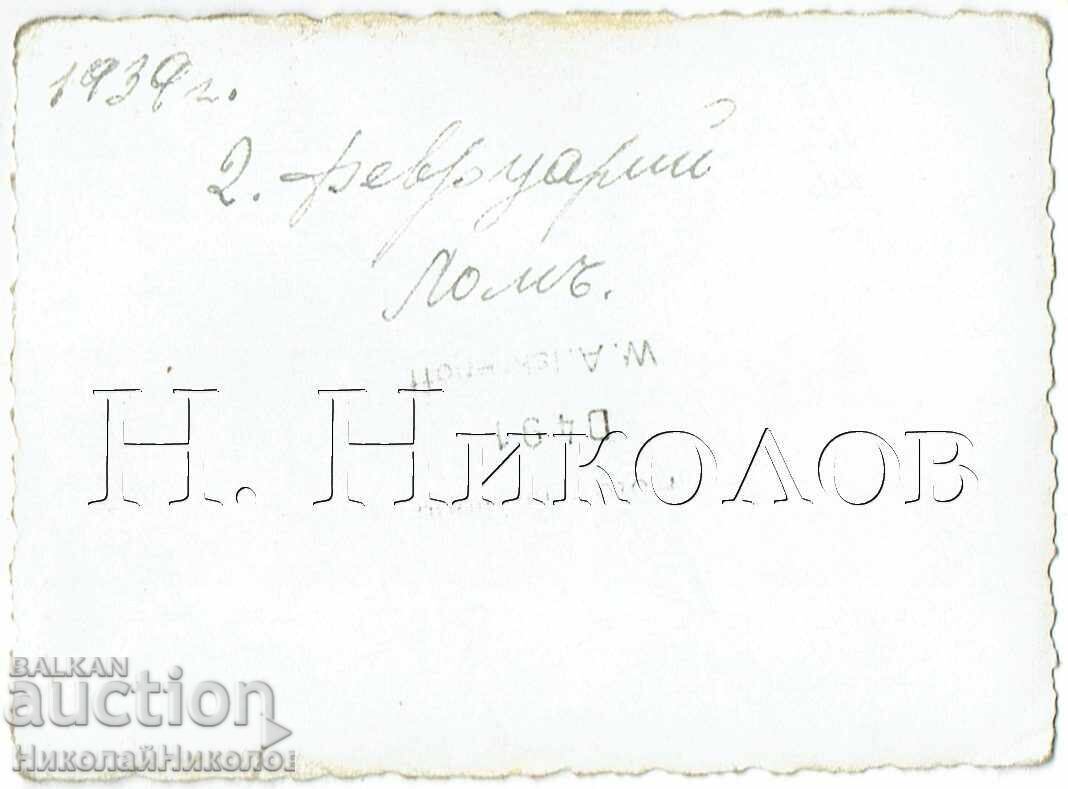 1939 г.
2. февруарий
Ломъ.
W. A.
Н. Николов
BALKAN
auction
НиколайНиколов